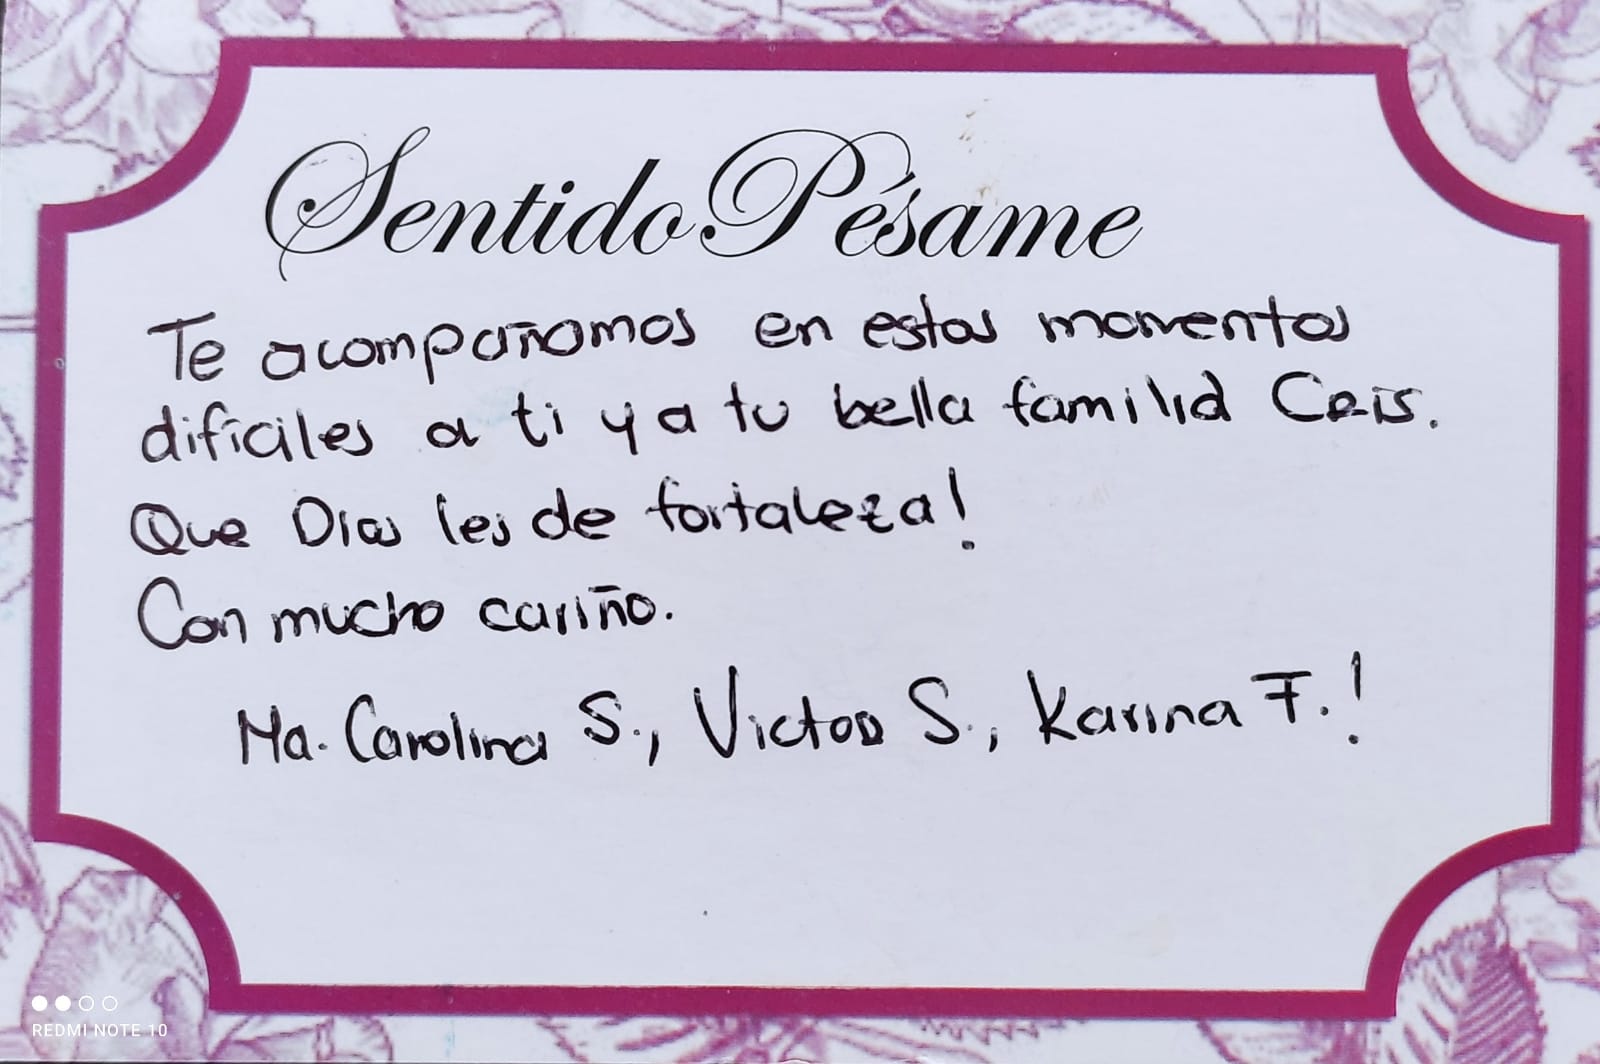 Sentido Pésame
Te acompañamos en estos momentos
difíciles a ti y a tu bella familia Cris.
Que Dios les de fortaleza!
Con mucho cariño.
Ma. Carolina S., Victor S., Karina F.!
REDMI NOTE 10